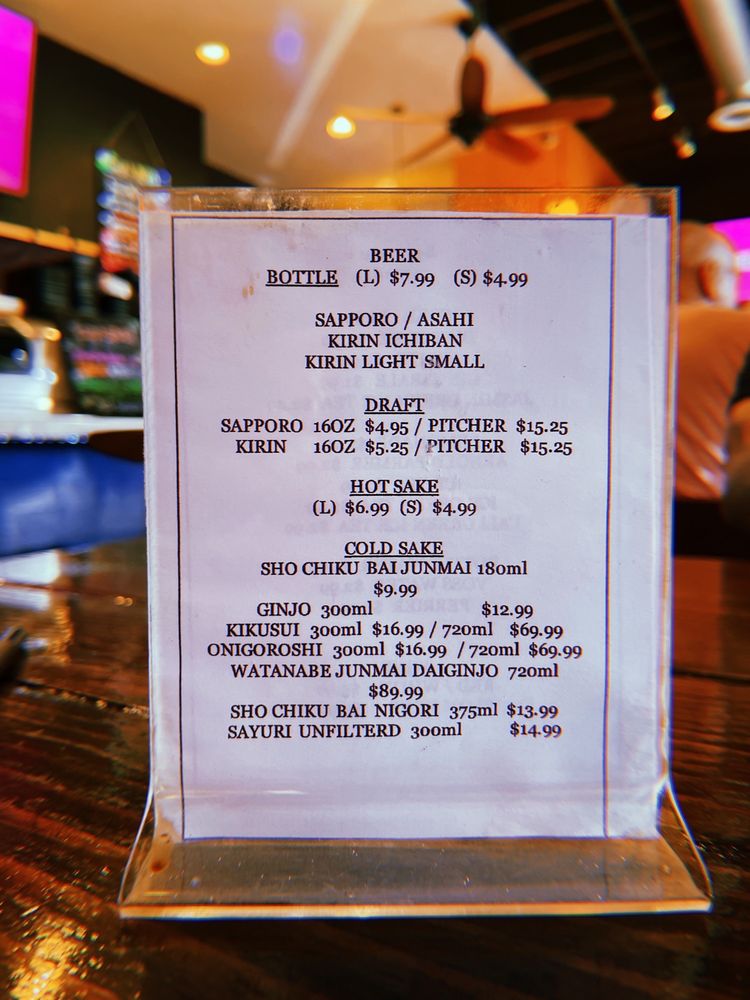 BEER
BOTTLE (L) $7.99 (S) $4.99
SAPPORO / ASAHI
KIRIN ICHIBAN
KIRIN LIGHT SMALL
DRAFT
SAPPORO 16OZ $4.95 / PITCHER $15.25
KIRIN 16OZ $5.25 / PITCHER $15.25
HOT SAKE
(L) $6.99 (S) $4.99
COLD SAKE
SHO CHIKU BAI JUNMAI 180ml
$9.99
GINJO 300ml $12.99
KIKUSUI 300ml $16.99 / 720ml $69.99
ONIGOROSHI 300ml $16.99 / 720ml $69.99
WATANABE JUNMAI DAIGINJO 720ml
$89.99
SHO CHIKU BAI NIGORI 375ml $13.99
SAYURI UNFILTERD 300ml $14.99